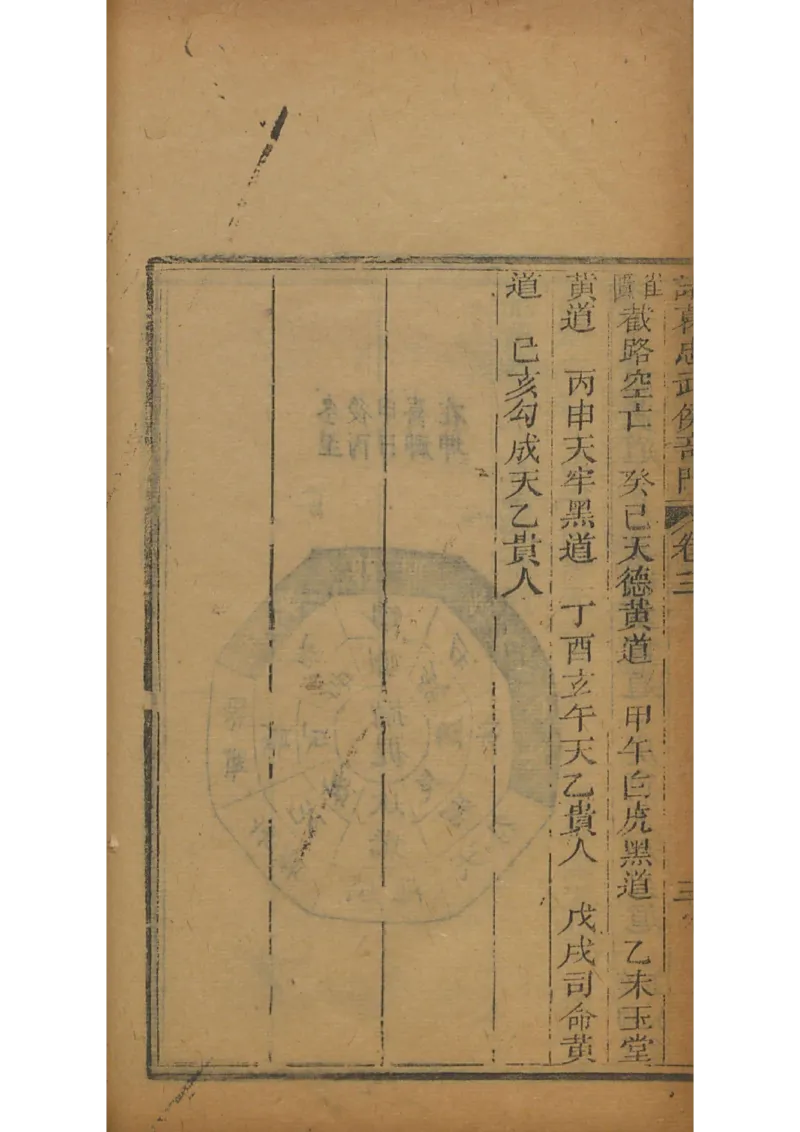 諸葛忠武侯奇門 卷三 三
雀黑截路空亡 癸巳天德黄道 甲午白虎黑道 乙未玉堂
黄道 丙申天牢黑道 丁酉玄午天乙貴人 戊戌司命黄
道 己亥勾成天乙貴人